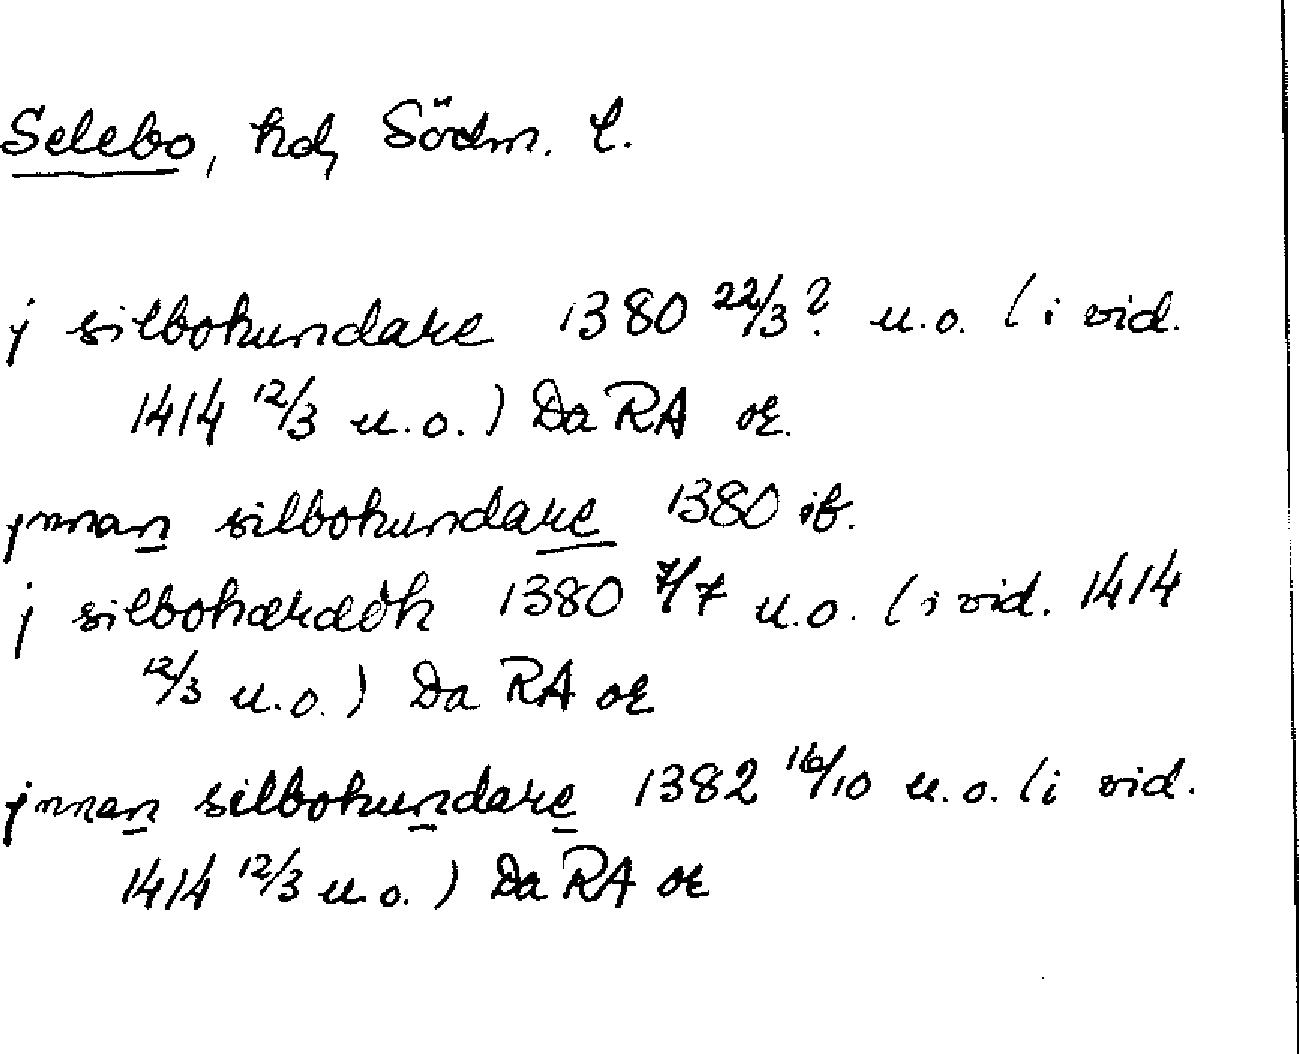 Selebo, hd, Södm. l.
j silbohundare 1380 22/3? u.o. (i vid.
1414 12/3 u.o.) Da RA or.
jnnan silbohundare 1380 ib.
j silbohæradh 1380 7/7 u.o. (i vid. 1414
12/3 u.o.) Da RA or
jnnan silbohundare 1382 16/10 u.o. (i vid.
1414 12/3 u.o.) Da RA or